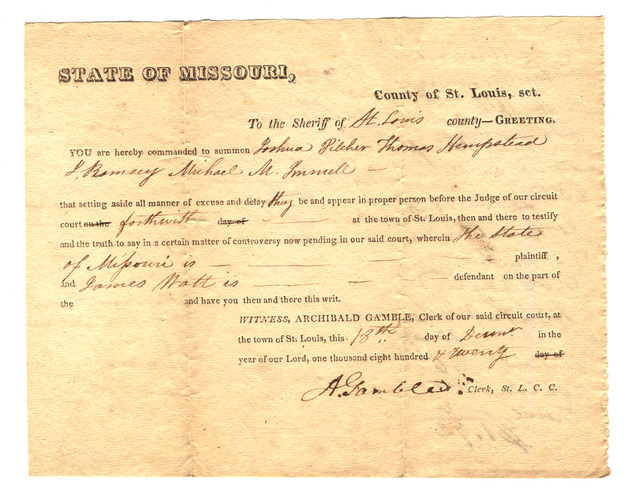 STATE OF MISSOURI,
County of St. Louis, sct.
To the Sheriff of St. Louis county—GREETING.
YOU are hereby commanded to summon Joshua Pilcher Thomas Hempstead
Ramsey Michael M. Immell —
that setting aside all manner of excuse and delay they be and appear in proper person before the Judge of our circuit
court on the forthwith day of — at the town of St. Louis, then and there to testify
and the truth to say in a certain matter of controversy now pending in our said court, wherein The State
of Missouri is — plaintiff ,
and James Watt is — defendant on the part of
the — and have you then and there this writ.
WITNESS, ARCHIBALD GAMBLE, Clerk of our said circuit court, at
the town of St. Louis, this 18th day of in the
year of our Lord, one thousand eight hundred & twenty day of
A. Gamble Clerk, St. L. C. C.